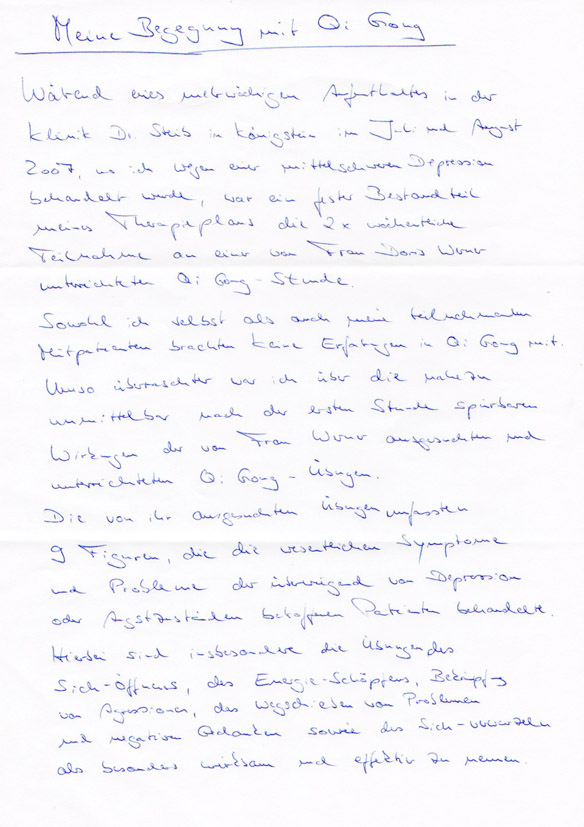 Meine Begegnung mit Qi Gong
Während eines mehrwöchigen Aufenthaltes in der
Klinik Dr. Steib in Königstein im Juli und August
2007, wo ich wegen einer mittelschweren Depression
behandelt wurde, war ein fester Bestandteil
meines Therapieplans die 2x wöchentliche
Teilnahme an einer von Frau Doris
unterrichteten Qi Gong-Stunde.
Sowohl ich selbst als auch meine teilnehmenden
Mitpatienten brachten keine Erfahrungen in Qi Gong mit.
Umso überraschter war ich über die nahezu
unmittelbar nach der ersten Stunde spürbaren
Wirkungen der von Frau ausgesuchten und
unterrichteten Qi Gong-Übungen.
Die von ihr ausgesuchten Übungen umfassten
9 Figuren, die die wesentlichen Symptome
und Probleme der überwiegend von Depression
oder Angstzuständen betroffenen Patienten behandelte.
Hierbei sind insbesondere die Übungen des
Sich-Öffnens, des Energie-Schöpfens, Bekämpfung
von Agressionen, das Wegschieben von Problemen
und negativen Gedanken sowie des Sich-verwurzeln
als besonders wirksam und effektiv zu nennen.